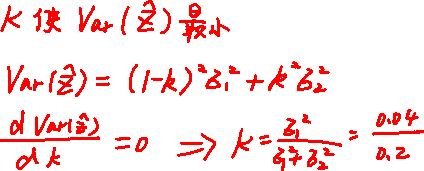 K 使 Var(ẑ) 最小
Var(ẑ) = (1-k)²σ₁² + k²σ₂²
d Var(ẑ) / d k = 0 ⇒ K = σ₁² / σ₁²+σ₂² = 0.04 / 0.2